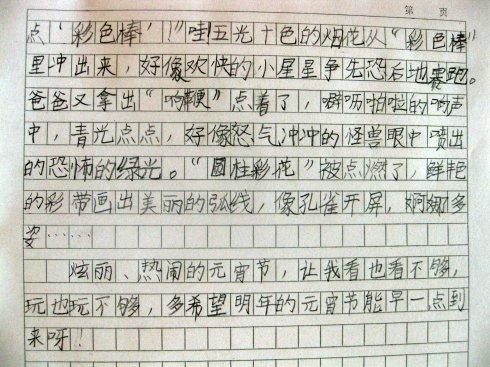 第 页
点“彩色棒”！“哇五光十色的烟花从“彩色棒”
里冲出来，好像欢快的小星星争先恐后地赛跑。
爸爸又拿出“响鞭”点着了，噼呖啪啦的响声
中，青光点点，好像怒气冲冲的怪兽眼中喷出
的恐怖的绿光。“圆柱彩花”被点燃了，鲜艳
的彩带画出美丽的弧线，像孔雀开屏，婀娜多
姿……
炫丽、热闹的元宵节，让我看也看不够，
玩也玩不够，多希望明年的元宵节能早一点到
来呀！